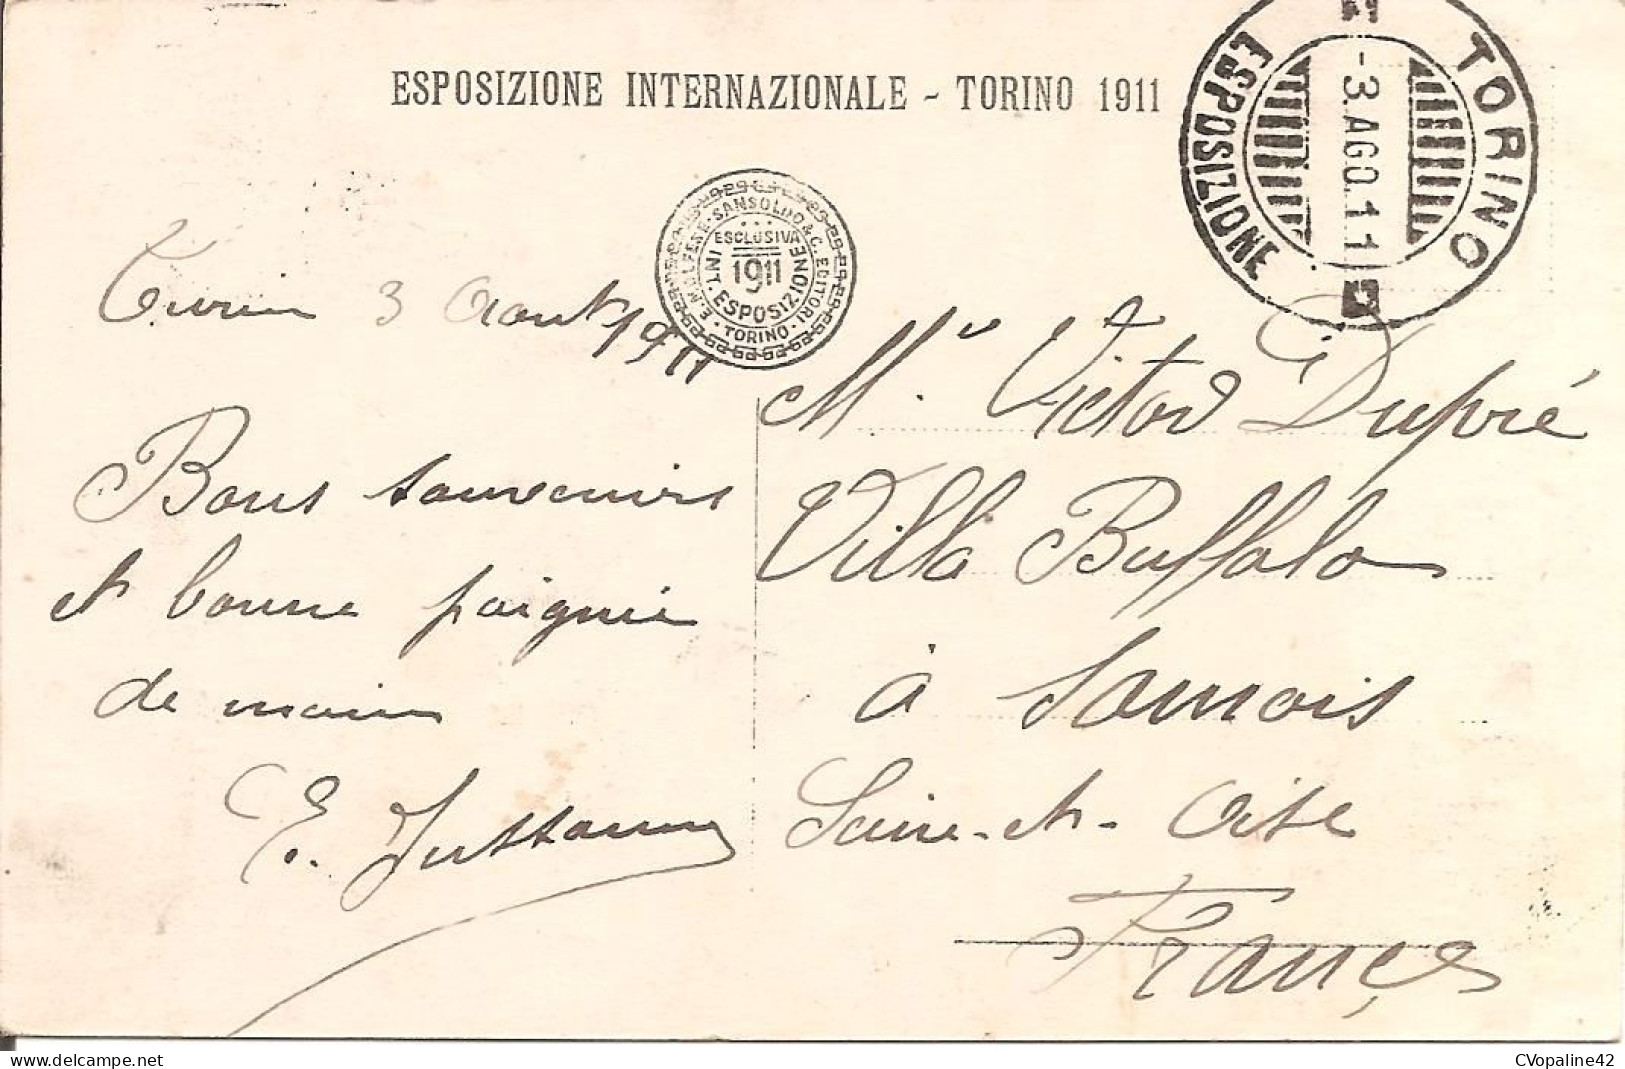 ESPOSIZIONE INTERNAZIONALE - TORINO 1911
TORINO
ESPOSIZIONE
-3.AGO.11
E. MOLFESE·SANSOLDO & C. EDITORI
ESCLUSIVA
1911
INT. ESPOSIZIONE
TORINO
Turin 3 Aout 1911
Bons souvenirs
et bonne poignée
de main
E.
Mr Victor Dupré
Villa Buffalo
à Samois
Seine-et-Oise
Françe
CVopaline42